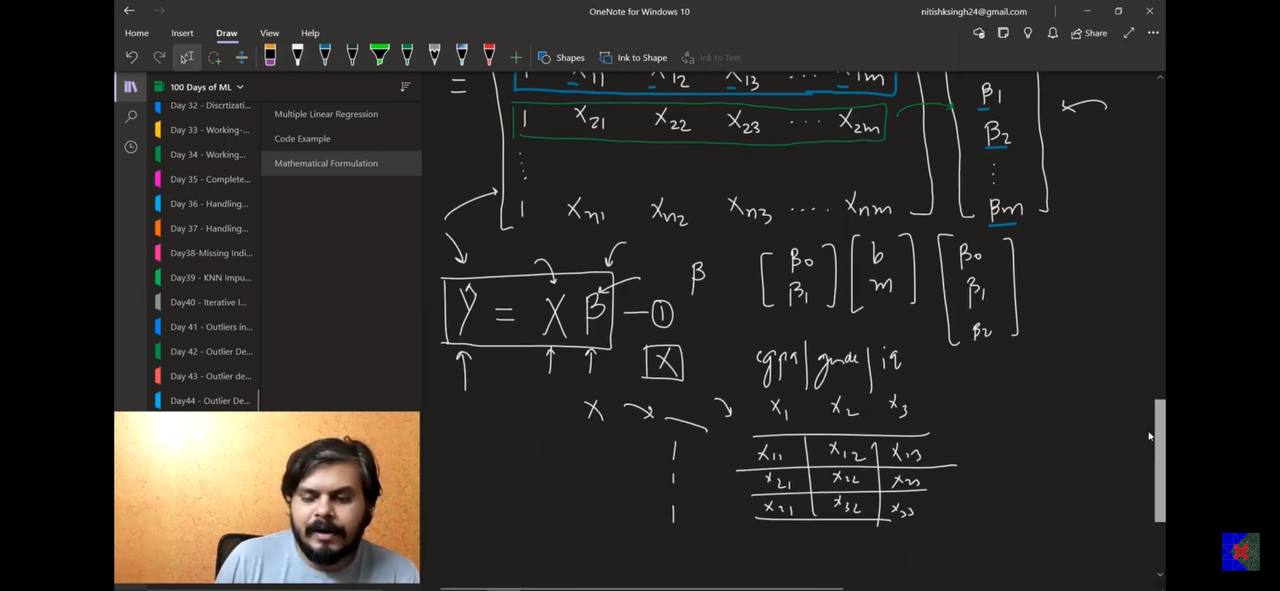 OneNote for Windows 10
nitishksingh24@gmail.com
Home Insert Draw View Help
Share
Shapes Ink to Shape Ink to Text
100 Days of ML
Day 32 - Discrtizati...
Day 33 - Working-...
Day 34 - Working...
Day 35 - Complete...
Day 36 - Handling...
Day 37 - Handling...
Day38-Missing Indi...
Day39 - KNN Impu...
Day40 - Iterative I...
Day 41 - Outliers in...
Day 42 - Outlier De...
Day 43 - Outlier de...
Day44 - Outlier De...
Multiple Linear Regression
Code Example
Mathematical Formulation
= 1 X11 X12 X13 ... X1m β1
1 X21 X22 X23 ... X2m β2
⋮ ⋮
1 Xn1 Xn2 Xn3 .... Xnm βm
Y = X β — ①
β
[β0 β1] [b m] [β0 β1 β2]
X
cgpa | | iq
X X1 X2 X3
1 X11 X12 X13
1 X21 X22 X23
1 X32 X33